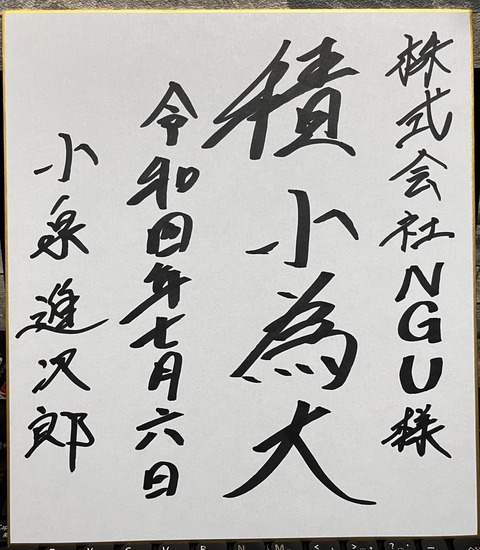 株式会社NGU様
積小為大
令和四年七月六日
小泉進次郎